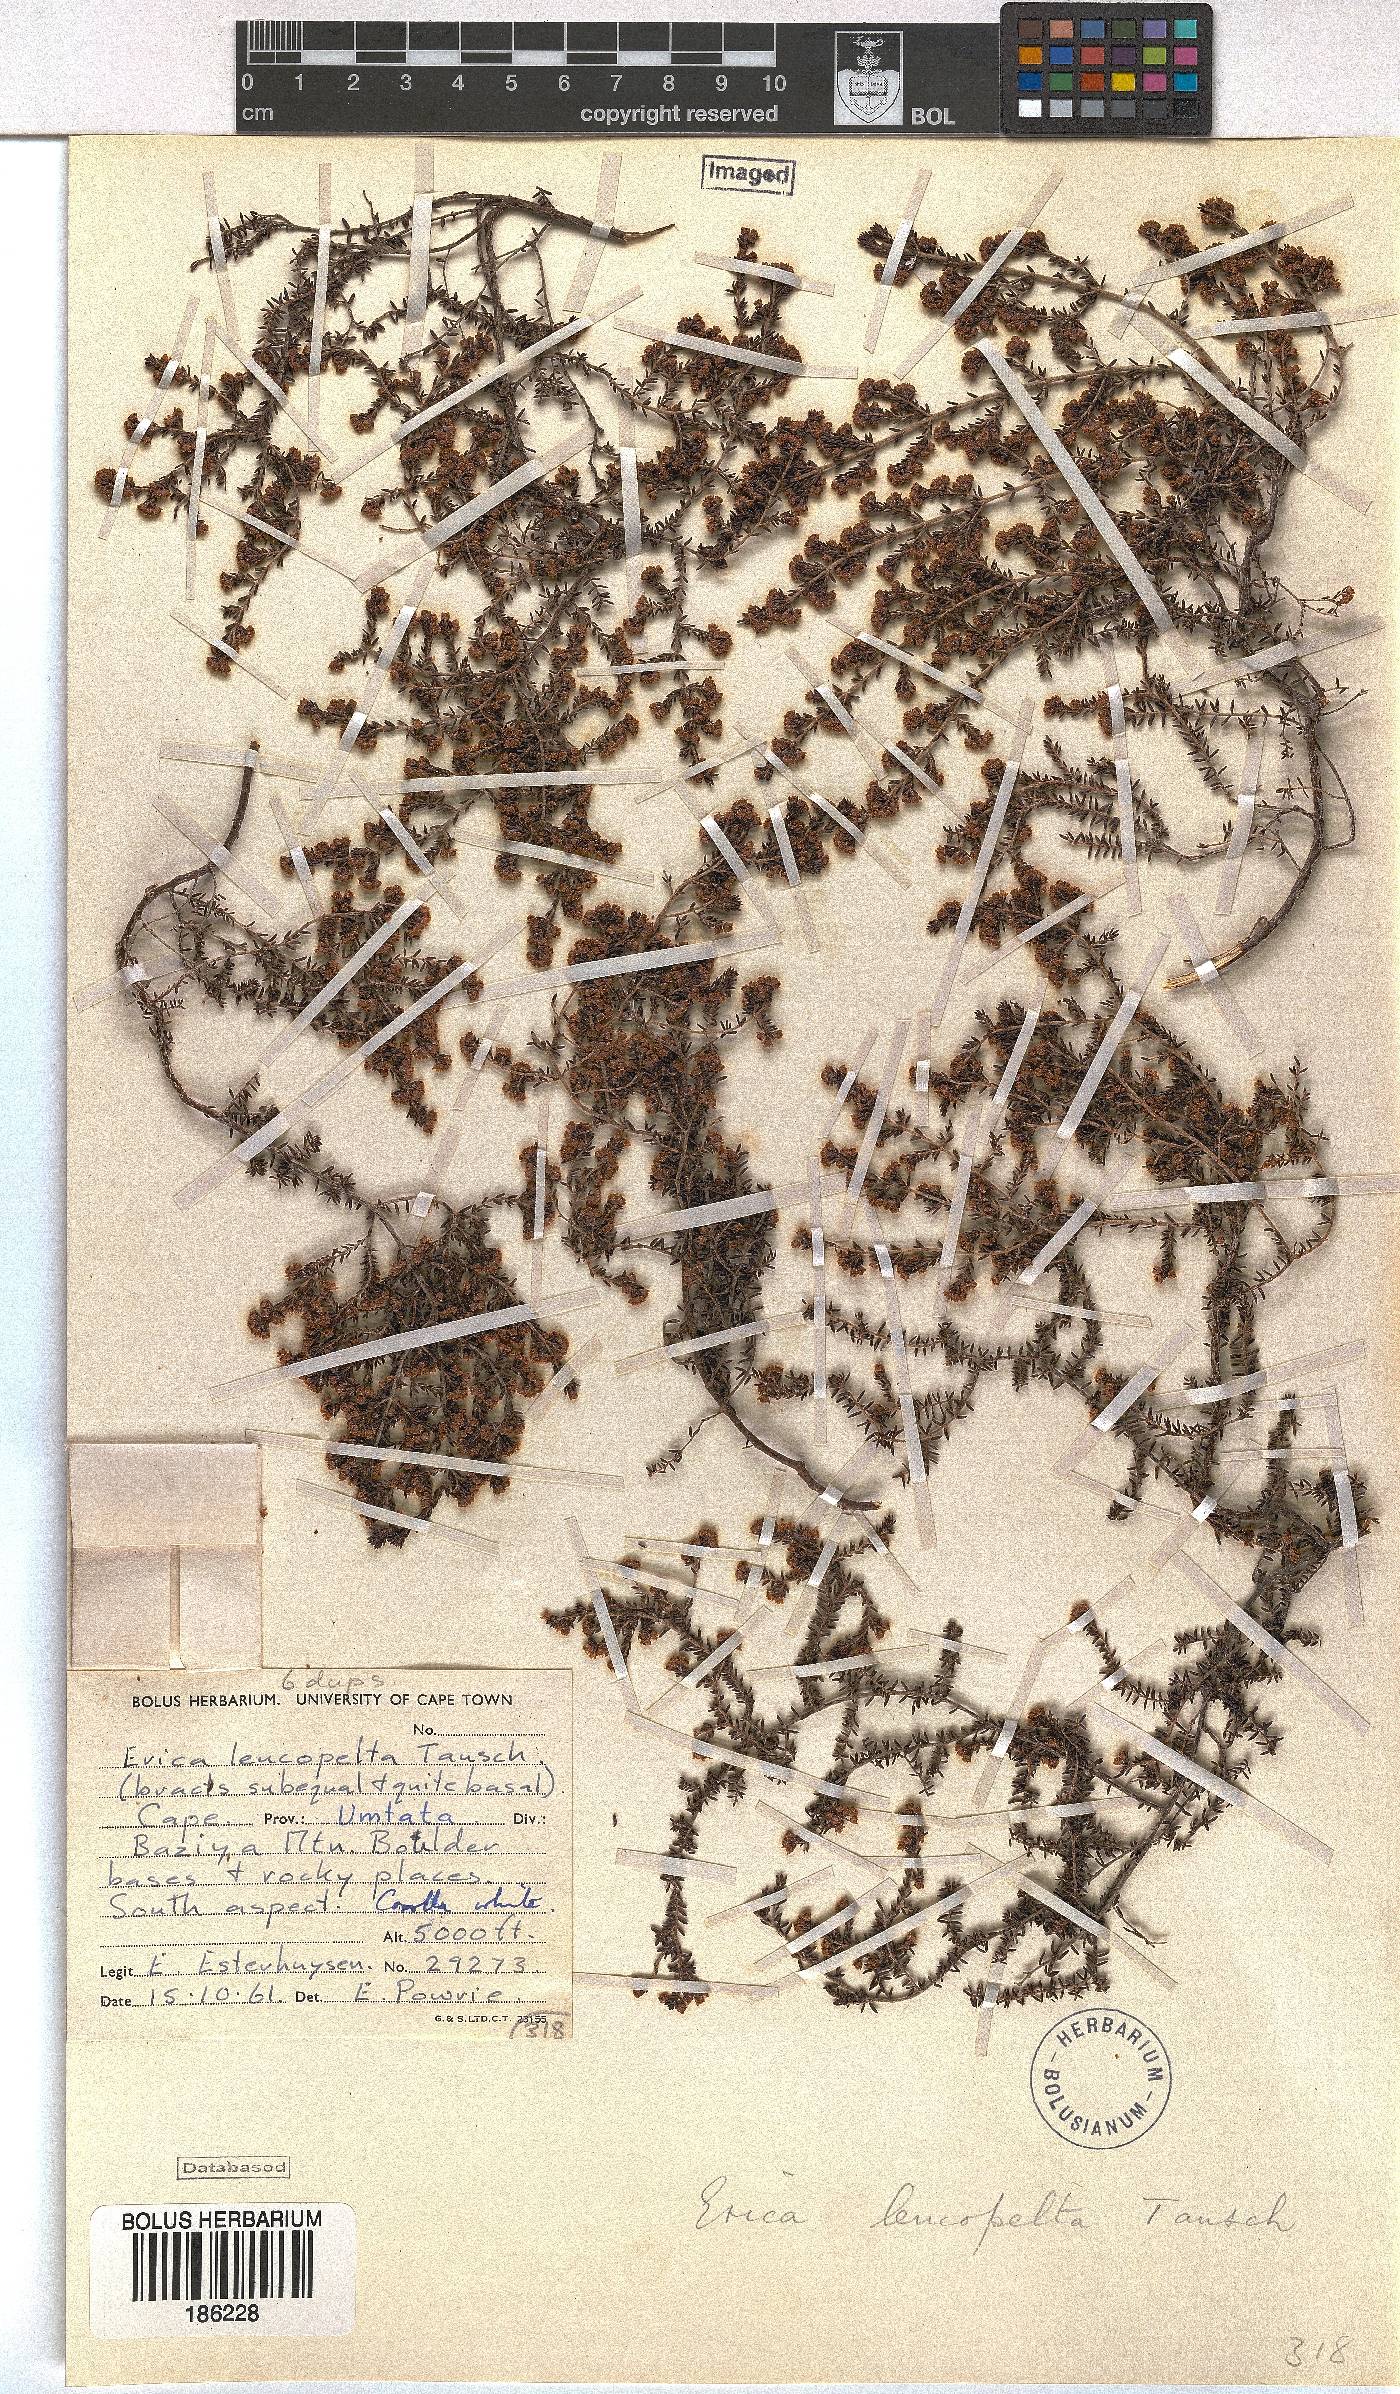 0 1 2 3 4 5 6 7 8 9 10
cm
copyright reserved
BOL
Imaged
6 dups
BOLUS HERBARIUM. UNIVERSITY OF CAPE TOWN
No.
Erica leucopelta Tausch.
(bracts subequal & quite basal).
Cape Prov.: Umtata Div.:
Baziya Mtn. Boulder
bases & rocky places.
South aspect. Corolla white.
Alt. 5000 ft.
Legit E. Esterhuysen. No. 29273.
Date 15.10.61. Det. E. Powrie.
G. & S. LTD. C.T. 23155
318
HERBARIUM
BOLUSIANUM
Databased
BOLUS HERBARIUM
186228
Erica leucopelta Tausch
318